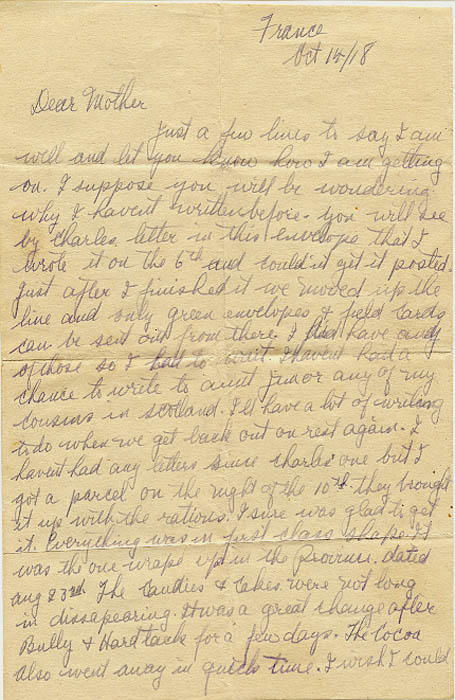 France
Oct 15/18
Dear Mother
Just a few lines to say I am
well and let you know how I am getting
on. I suppose you will be wondering
why I havent written before. You will see
by Charles letter in this envelope that I
wrote it on the 6th and couldnt get it posted.
Just after I finished it we moved up the
line and only green envelopes & field cards
can be sent out from there. I have
of those so I had to wait. I havent had a
chance to write to aunt or any of my
cousins in scotland. I'll have a lot of writing
to do when we get back out on rest again. I
havent had any letters since Charles one but I
got a parcel on the night of the 10th they brought
it up with the rations. I sure was glad to get
it. Everything was in first class shape. It
was the one wrape up in the Province. dated
aug 23rd The Candies & Cakes were not long
in dissapearing. It was a great change after
Bully & Hardtack for a few days. The Cocoa
also went away in quick time. I wish I could